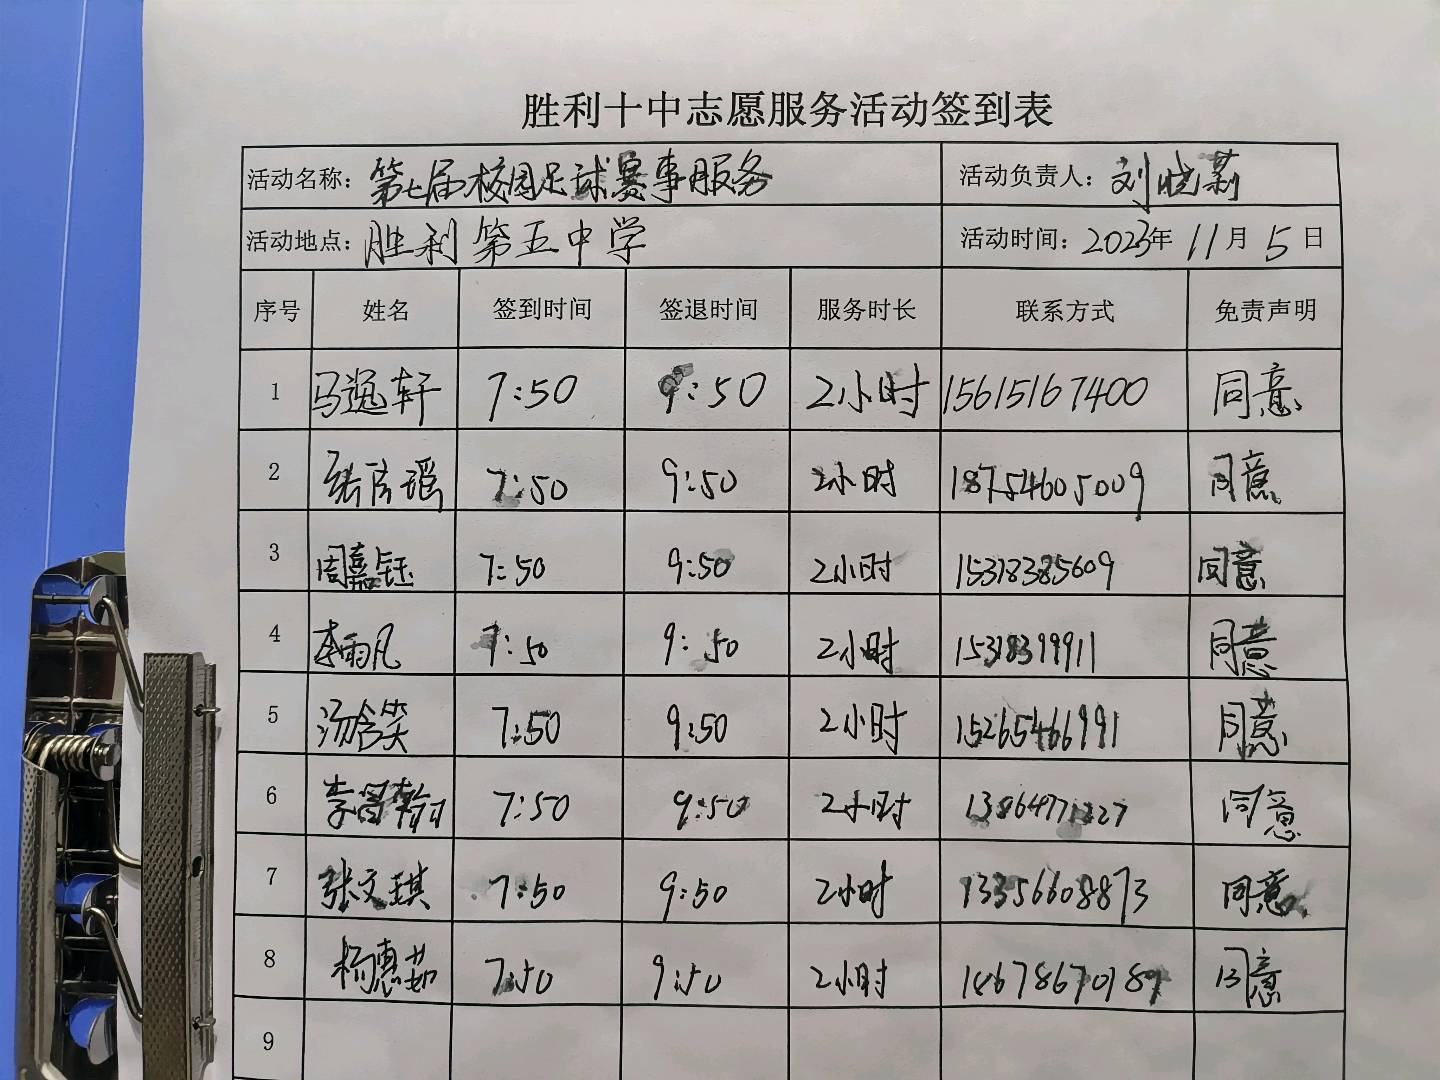 胜利十中志愿服务活动签到表
活动名称：第七届校园足球赛事服务 活动负责人：刘晓莉
活动地点：胜利第五中学 活动时间：2023年11月5日
序号 姓名 签到时间 签退时间 服务时长 联系方式 免责声明
1 马逸轩 7:50 9:50 2小时 15615167400 同意
2 7:50 9:50 2小时 18754605009 同意
3 周嘉钰 7:50 9:50 2小时 15318385609 同意
4 李雨凡 7:50 9:50 2小时 同意
5 汤含笑 7:50 9:50 2小时 15265466991 同意
6 7:50 9:50 2小时 同意
7 张文琪 7:50 9:50 2小时 13356608873 同意
8 杨惠茹 7:50 9:50 2小时 同意
9